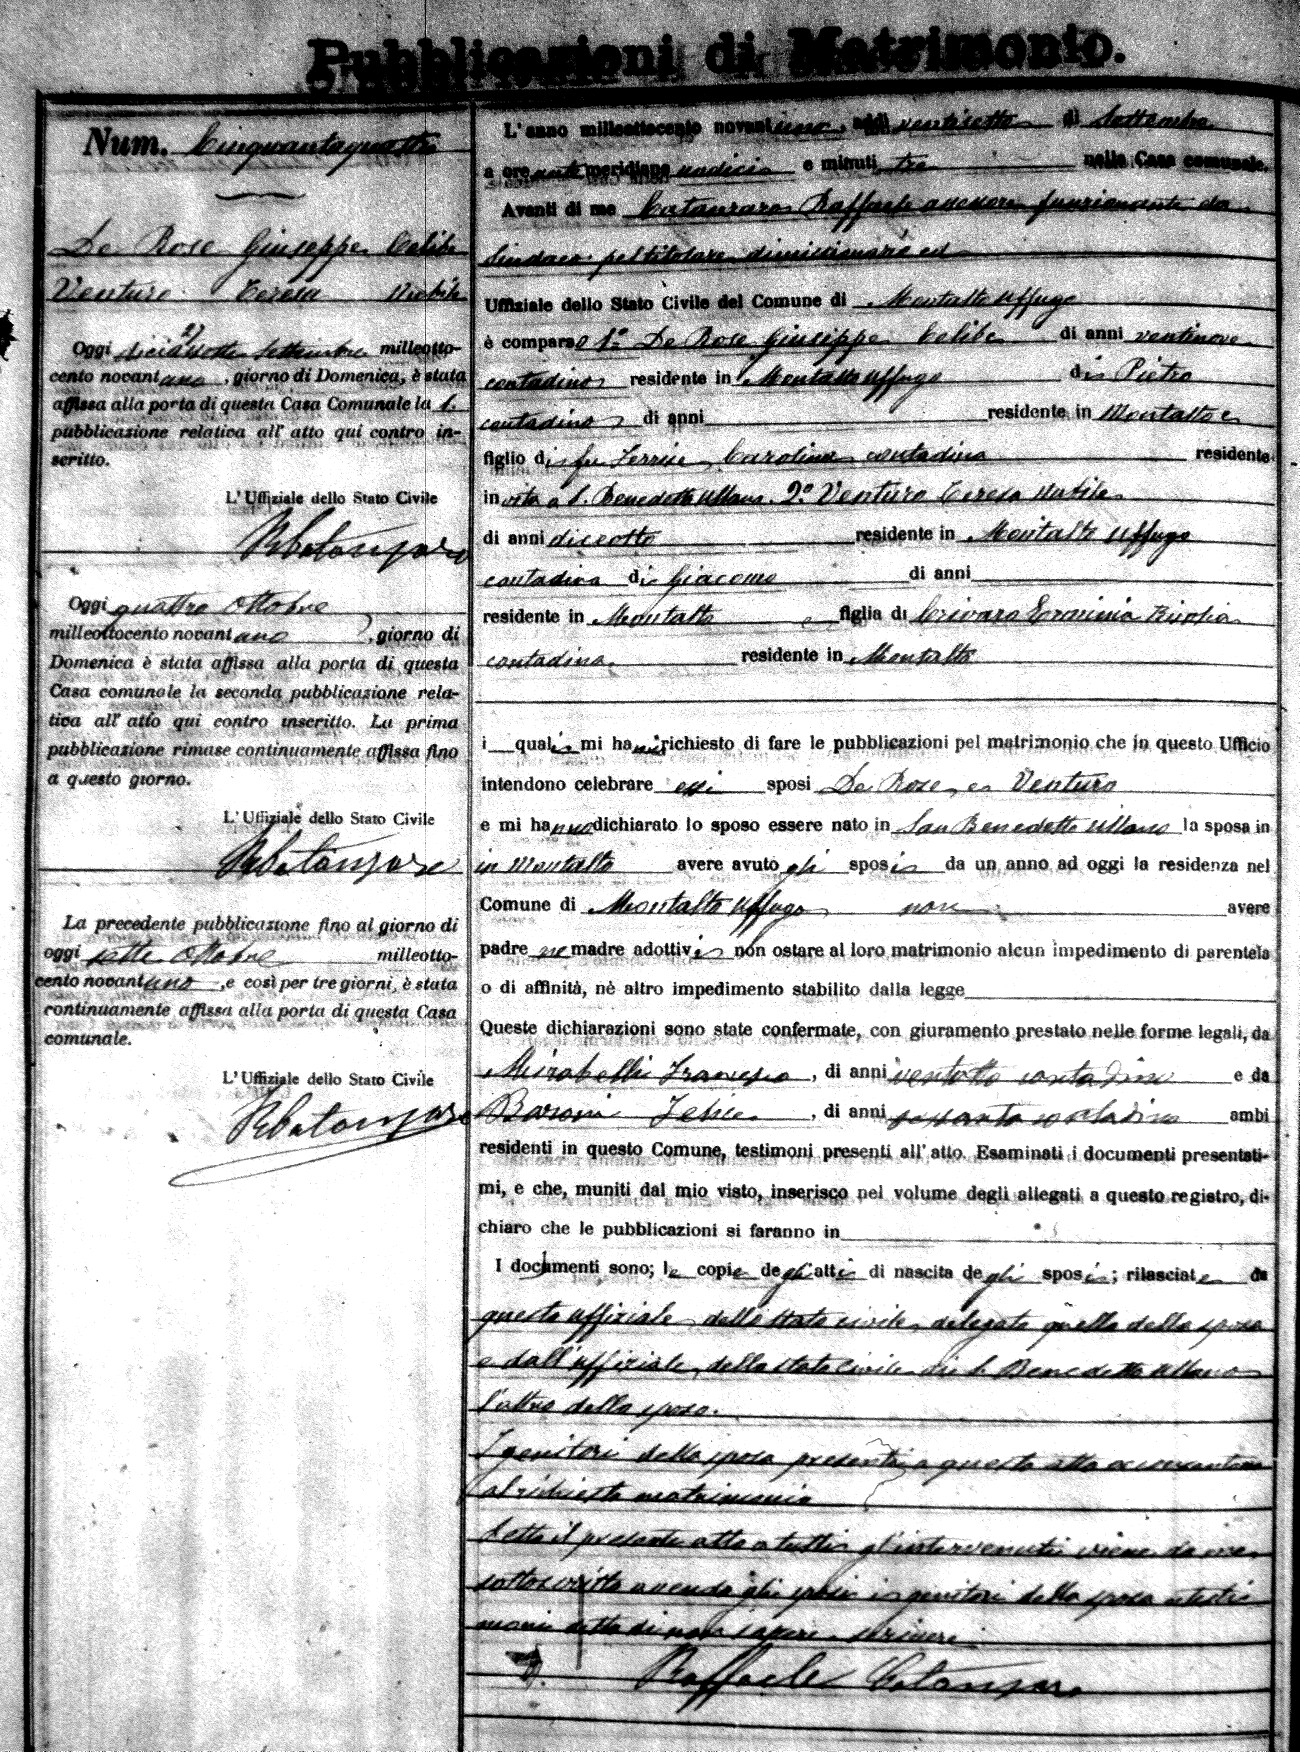 Pubblicazioni di Matrimonio.
Num. Cinquantaquattro
De Rose Giuseppe Celibe
Venturo Teresa Nubile
Oggi settembre milleotto-
cento novantuno, giorno di Domenica, è stata
affissa alla porta di questa Casa Comunale la 1.
pubblicazione relativa all' atto qui contro in-
scritto.
L' Uffiziale dello Stato Civile
RCatanzaro
Oggi quattro Ottobre
milleottocento novantuno, giorno di
Domenica è stata affissa alla porta di questa
Casa comunale la seconda pubblicazione rela-
tiva all' atto qui contro inscritto. La prima
pubblicazione rimase continuamente affissa fino
a questo giorno.
L' Uffiziale dello Stato Civile
RCatanzaro
La precedente pubblicazione fino al giorno di
oggi sette Ottobre milleotto-
cento novantuno, e così per tre giorni, è stata
continuamente affissa alla porta di questa Casa
comunale.
L' Uffiziale dello Stato Civile
RCatanzaro
L' anno milleottocento novantuno, addì ventisette di Settembre
a ore antimeridiane undici e minuti tre nella Casa comunale.
Avanti di me Catanzaro Raffaele assessore funzionante da
Sindaco pel titolare dimissionario ed
Uffiziale dello Stato Civile del Comune di Montalto Uffugo
è comparso 1º De Rose Giuseppe celibe di anni ventinove
contadino residente in Montalto Uffugo di Pietro
contadino di anni residente in Montalto e
figlio di fu Carolina contadina residente
in vita a S. Benedetto Ullano. 2º Venturo Teresa nubile
di anni diciotto residente in Montalto Uffugo
contadina di Giacomo di anni
residente in Montalto figlia di Crivaro Erminia
contadina residente in Montalto
i quali mi hanno richiesto di fare le pubblicazioni pel matrimonio che in questo Ufficio
intendono celebrare essi sposi De Rose e Venturo
e mi hanno dichiarato lo sposo essere nato in San Benedetto Ullano la sposa in
in Montalto avere avuto gli sposi da un anno ad oggi la residenza nel
Comune di Montalto Uffugo non avere
padre ne madre adottivi non ostare al loro matrimonio alcun impedimento di parentela
o di affinità, nè altro impedimento stabilito dalla legge
Queste dichiarazioni sono state confermate, con giuramento prestato nelle forme legali, da
Mirabelli Francesco, di anni ventotto contadino e da
Baroni Felice, di anni sessanta contadino ambi
residenti in questo Comune, testimoni presenti all' atto. Esaminati i documenti presentati-
mi, e che, muniti dal mio visto, inserisco nel volume degli allegati a questo registro, di-
chiaro che le pubblicazioni si faranno in
I documenti sono; le copie degli atti di nascita degli sposi; rilasciate da
questo uffiziale dello stato civile delegato quella della sposa
e dall'uffiziale dello stato civile di S. Benedetto Ullano
l'altra dello sposo.
I genitori della sposa presenti a questo atto acconsentono
al richiesto matrimonio
Letto il presente atto a tutti gl'intervenuti viene da me
sottoscritto avendo gli sposi i genitori della sposa e testi
moni detto di non sapere scrivere
Raffaele Catanzaro